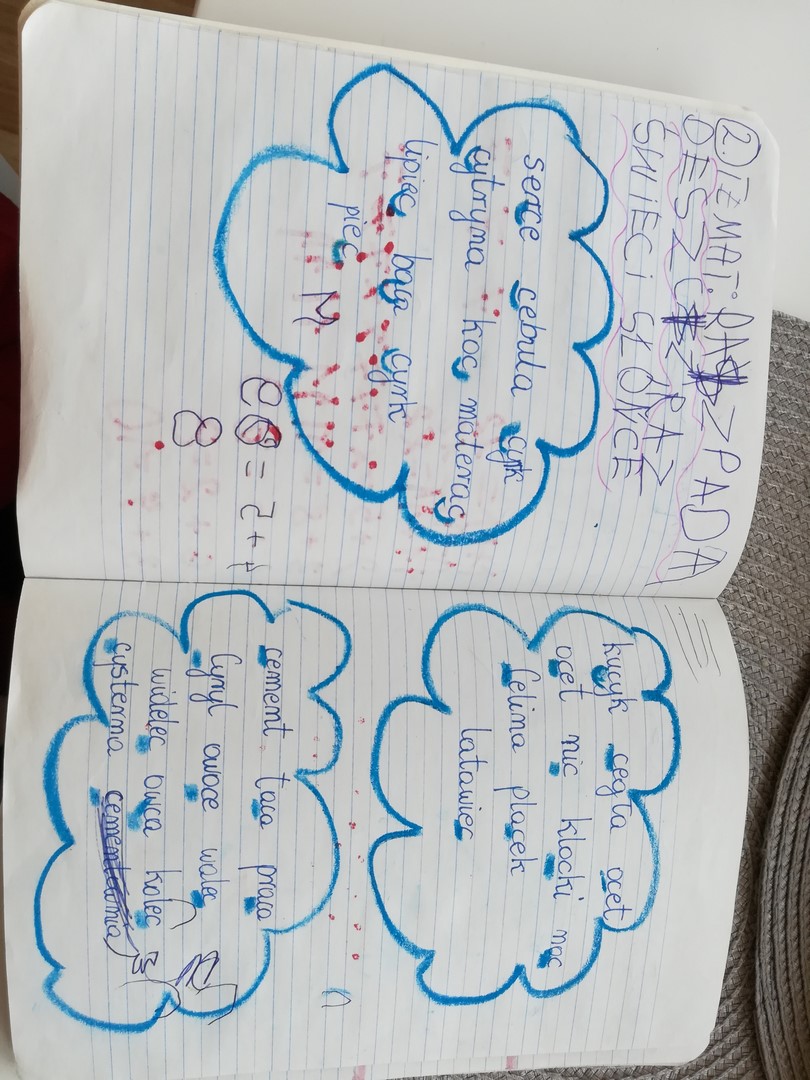 2. TEMAT: RAZ PADA
DESZCZ, RAZ
ŚWIECI SŁOŃCE
serce cebula cyrk
cytryna koc materac
lipiec baca cyrk
piec
M
= 2 +
8
kucyk cegła ocet
ocet nic klocki noc
Celina placek
latawiec
cement taca praca
Cyryl owoce walec
widelec owca kolec
cysterna